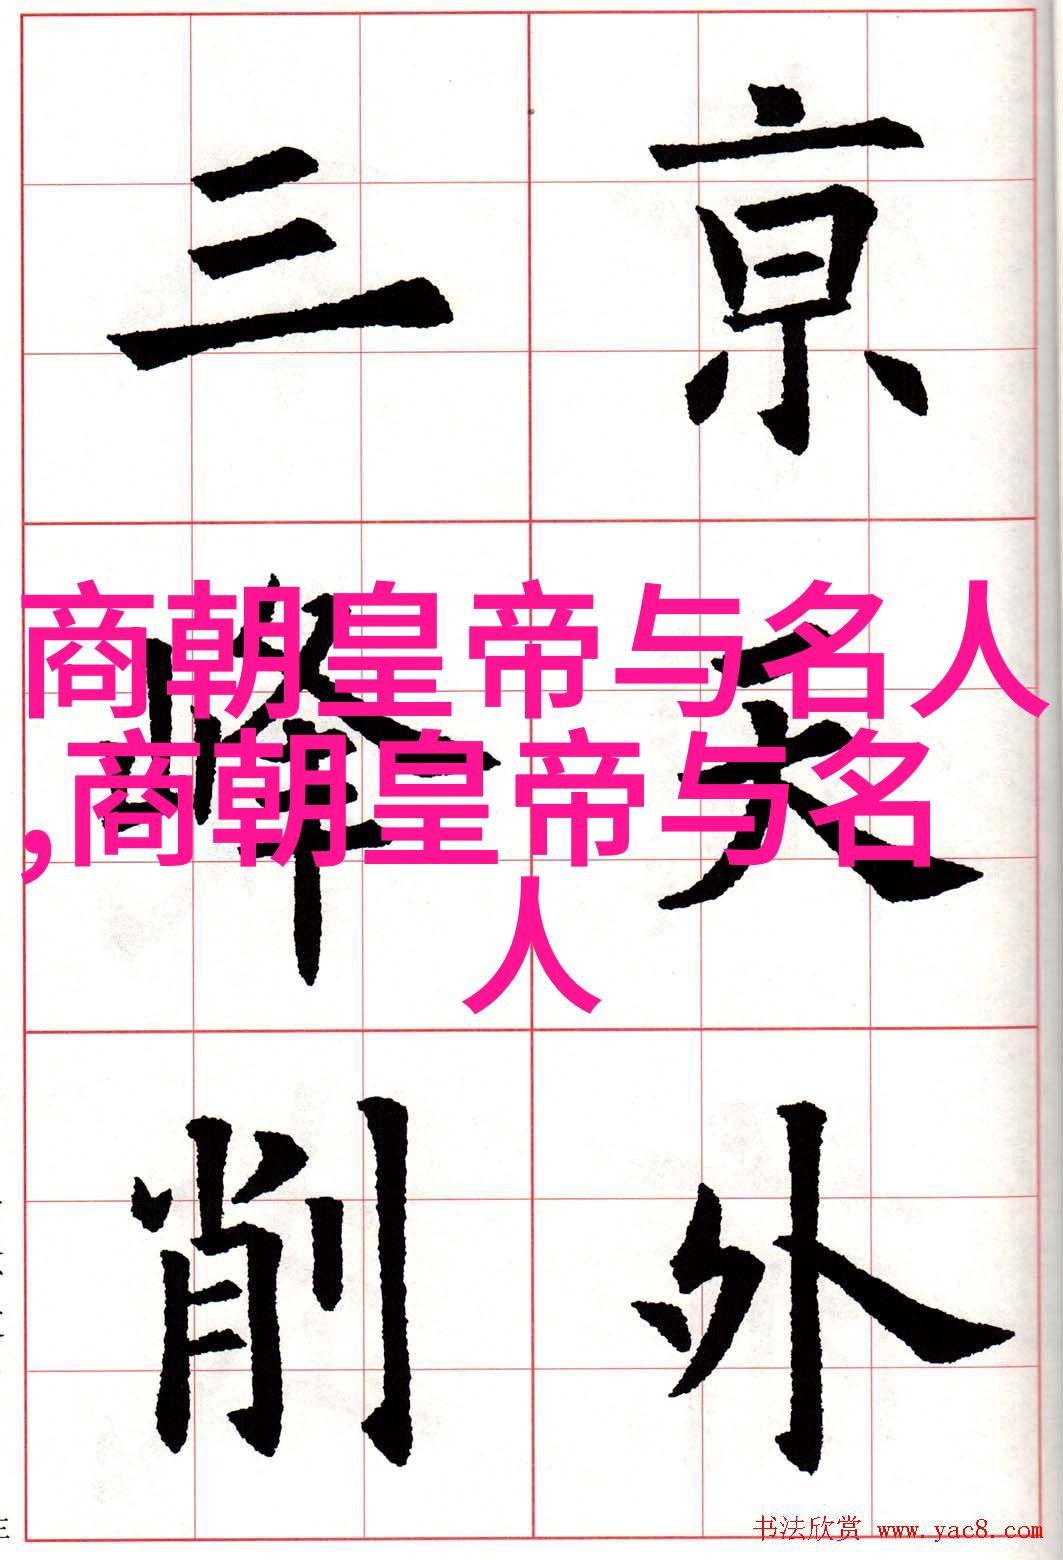 亰天外
三峰削
商朝皇帝与名人
,商朝皇帝与名
人
书法欣赏 www.yac8.com